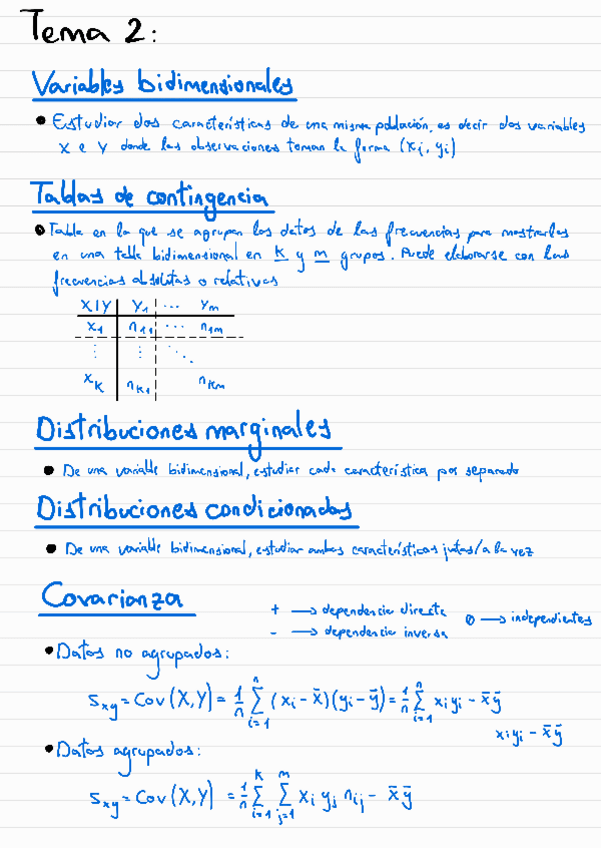 Tema 2:
Variables bidimensionales
• Estudiar dos características de una misma población, es decir dos variables
X e Y donde las observaciones toman la forma (xi, yi)
Tablas de contingencia
• Tabla en la que se agrupan los datos de las frecuencias para mostrarlos
en una tabla bidimensional en k y m grupos. Puede elaborarse con las
frecuencias absolutas o relativas
X|Y y₁ ... yₘ
x₁ n₁₁ ... n₁ₘ
⋮ ⋮ ⋱
x_k n_k1 n_km
Distribuciones marginales
• De una variable bidimensional, estudiar cada característica por separado
Distribuciones condicionadas
• De una variable bidimensional, estudiar ambas características juntas/a la vez
Covarianza
+ → dependencia directa
0 → independientes
- → dependencia inversa
• Datos no agrupados:
S_xy = Cov(X,Y) = 1/n ∑_{i=1}^{n} (xi - x̄)(yi - ȳ) = 1/n ∑_{i=1}^{n} xi yi - x̄ȳ
xi yi - x̄ȳ
• Datos agrupados:
S_xy = Cov(X,Y) = 1/n ∑_{i=1}^{k} ∑_{j=1}^{m} xi yj nij - x̄ȳ